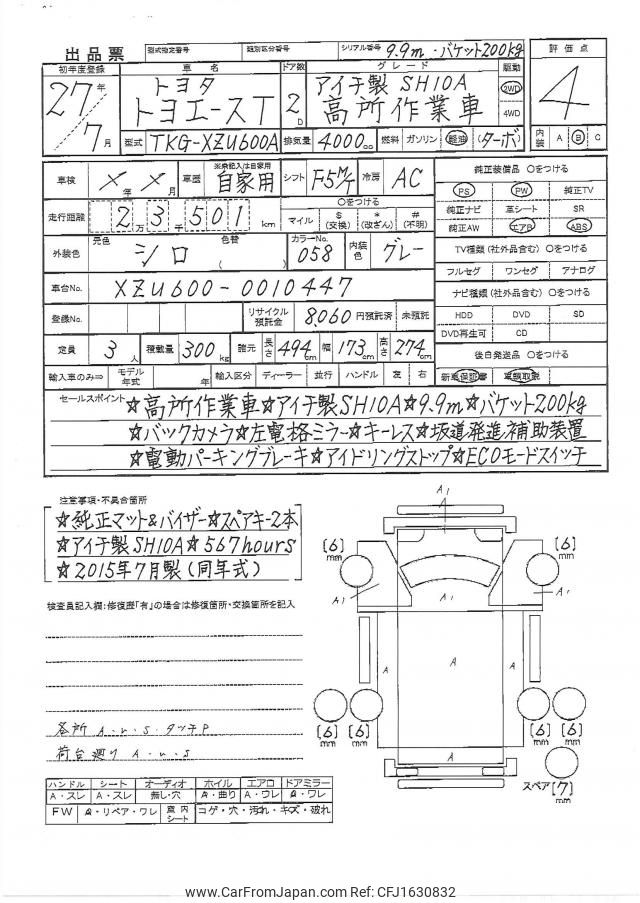 出品票 型式指定番号 類別区分番号 シリアル番号 9.9m・バケット200kg
評価点
4
内装 A B C
初年度登録 車名 ドア数 グレード 駆動
27年 7月
トヨタ
トヨエースT
2D
アイチ製 SH10A
高所作業車
2WD
4WD
型式 TKG-XZU600A 排気量 4000cc 燃料 ガソリン 軽油 (ターボ)
車検 ×年×月 車歴 ※未記入は自家用 自家用 シフト F5M/T 冷房 AC
走行距離 2万3千501km
〇をつける
マイル $(交換) *(改ざん) #(不明)
外装色 元色 シロ 色替 ( ) カラーNo. 058 内装色 グレー
車台No. XZU600-0010447
登録No. リサイクル預託金 8,060円預託済 未預託
定員 3人 積載量 300kg 諸元 長さ 494cm 幅 173cm 高さ 274cm
輸入車のみ⇒ モデル年式 年 輸入区分 ディーラー 並行 ハンドル 左 右
純正装備品 〇をつける
PS PW 純正TV
純正ナビ 革シート SR
純正AW エアB ABS
TV種類(社外品含む) 〇をつける
フルセグ ワンセグ アナログ
ナビ種類(社外品含む) 〇をつける
HDD DVD SD
DVD再生可 CD
後日発送品 〇をつける
新車保証書 車輌取説
セールスポイント
☆高所作業車☆アイチ製SH10A☆9.9m☆バケット200kg
☆バックカメラ☆左電格ミラー☆キーレス☆坂道発進補助装置
☆電動パーキングブレーキ☆アイドリングストップ☆ECOモードスイッチ
注意事項・不具合箇所
☆純正マット&バイザー☆スペアキー2本
☆アイチ製SH10A☆567hours
☆2015年7月製(同年式)
検査員記入欄:修復歴「有」の場合は修復箇所・交換箇所を記入
各所 A・U・S・タッチP
荷台廻り A・U・S
ハンドル シート オーディオ ホイル エアロ ドアミラー
A・スレ A・スレ 無し・穴 A・曲り A・ワレ A・ワレ
FW A・リペア・ワレ 室内シート コゲ・穴・汚れ・キズ・破れ
A1
[6]mm [6]mm
A1 A1 A1
A A A
[6]mm [6]mm [6]mm [6]mm
A
スペア[7]mm
www.CarFromJapan.com Ref: CFJ1630832